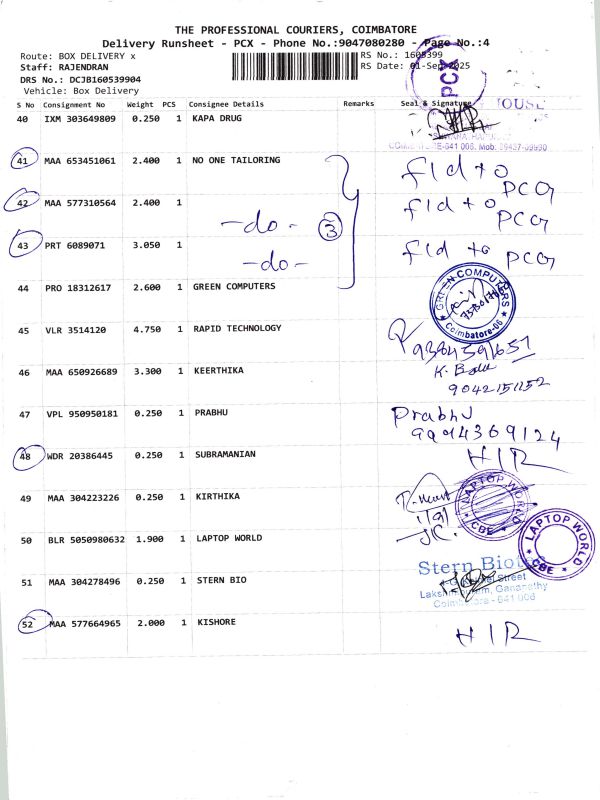 THE PROFESSIONAL COURIERS, COIMBATORE
Delivery Runsheet - PCX - Phone No.:9047080280 - Page No.:4
Route: BOX DELIVERY x
RS No.: 1605399
Staff: RAJENDRAN
RS Date: 01-Sep-2025
DRS No.: DCJBI160539904
Vehicle: Box Delivery
PCX
S No Consignment No Weight PCS Consignee Details Remarks Seal & Signature
HOUSE
40 IXM 303649809 0.250 1 KAPA DRUG
41 MAA 653451061 2.400 1 NO ONE TAILORING
fld to PCG
42 MAA 577310564 2.400 1
-do- 3
fld to PCG
43 PRT 6089071 3.050 1
-do-
fld to PCG
44 PRO 18312617 2.600 1 GREEN COMPUTERS
GREEN COMPUTERS
Coimbatore-06
45 VLR 3514120 4.750 1 RAPID TECHNOLOGY
9384591651
46 MAA 650926689 3.300 1 KEERTHIKA
9042151152
47 VPL 950950181 0.250 1 PRABHU
Prabhu
9994369124
48 WDR 20386445 0.250 1 SUBRAMANIAN
H/R
49 MAA 304223226 0.250 1 KIRTHIKA
LAPTOP WORLD
CBE
50 BLR 5050980632 1.900 1 LAPTOP WORLD
LAPTOP WORLD
CBE
51 MAA 304278496 0.250 1 STERN BIO
Stern
Street
Ganapathy
Coimbatore - 641 006
52 MAA 577664965 2.000 1 KISHORE
H/R